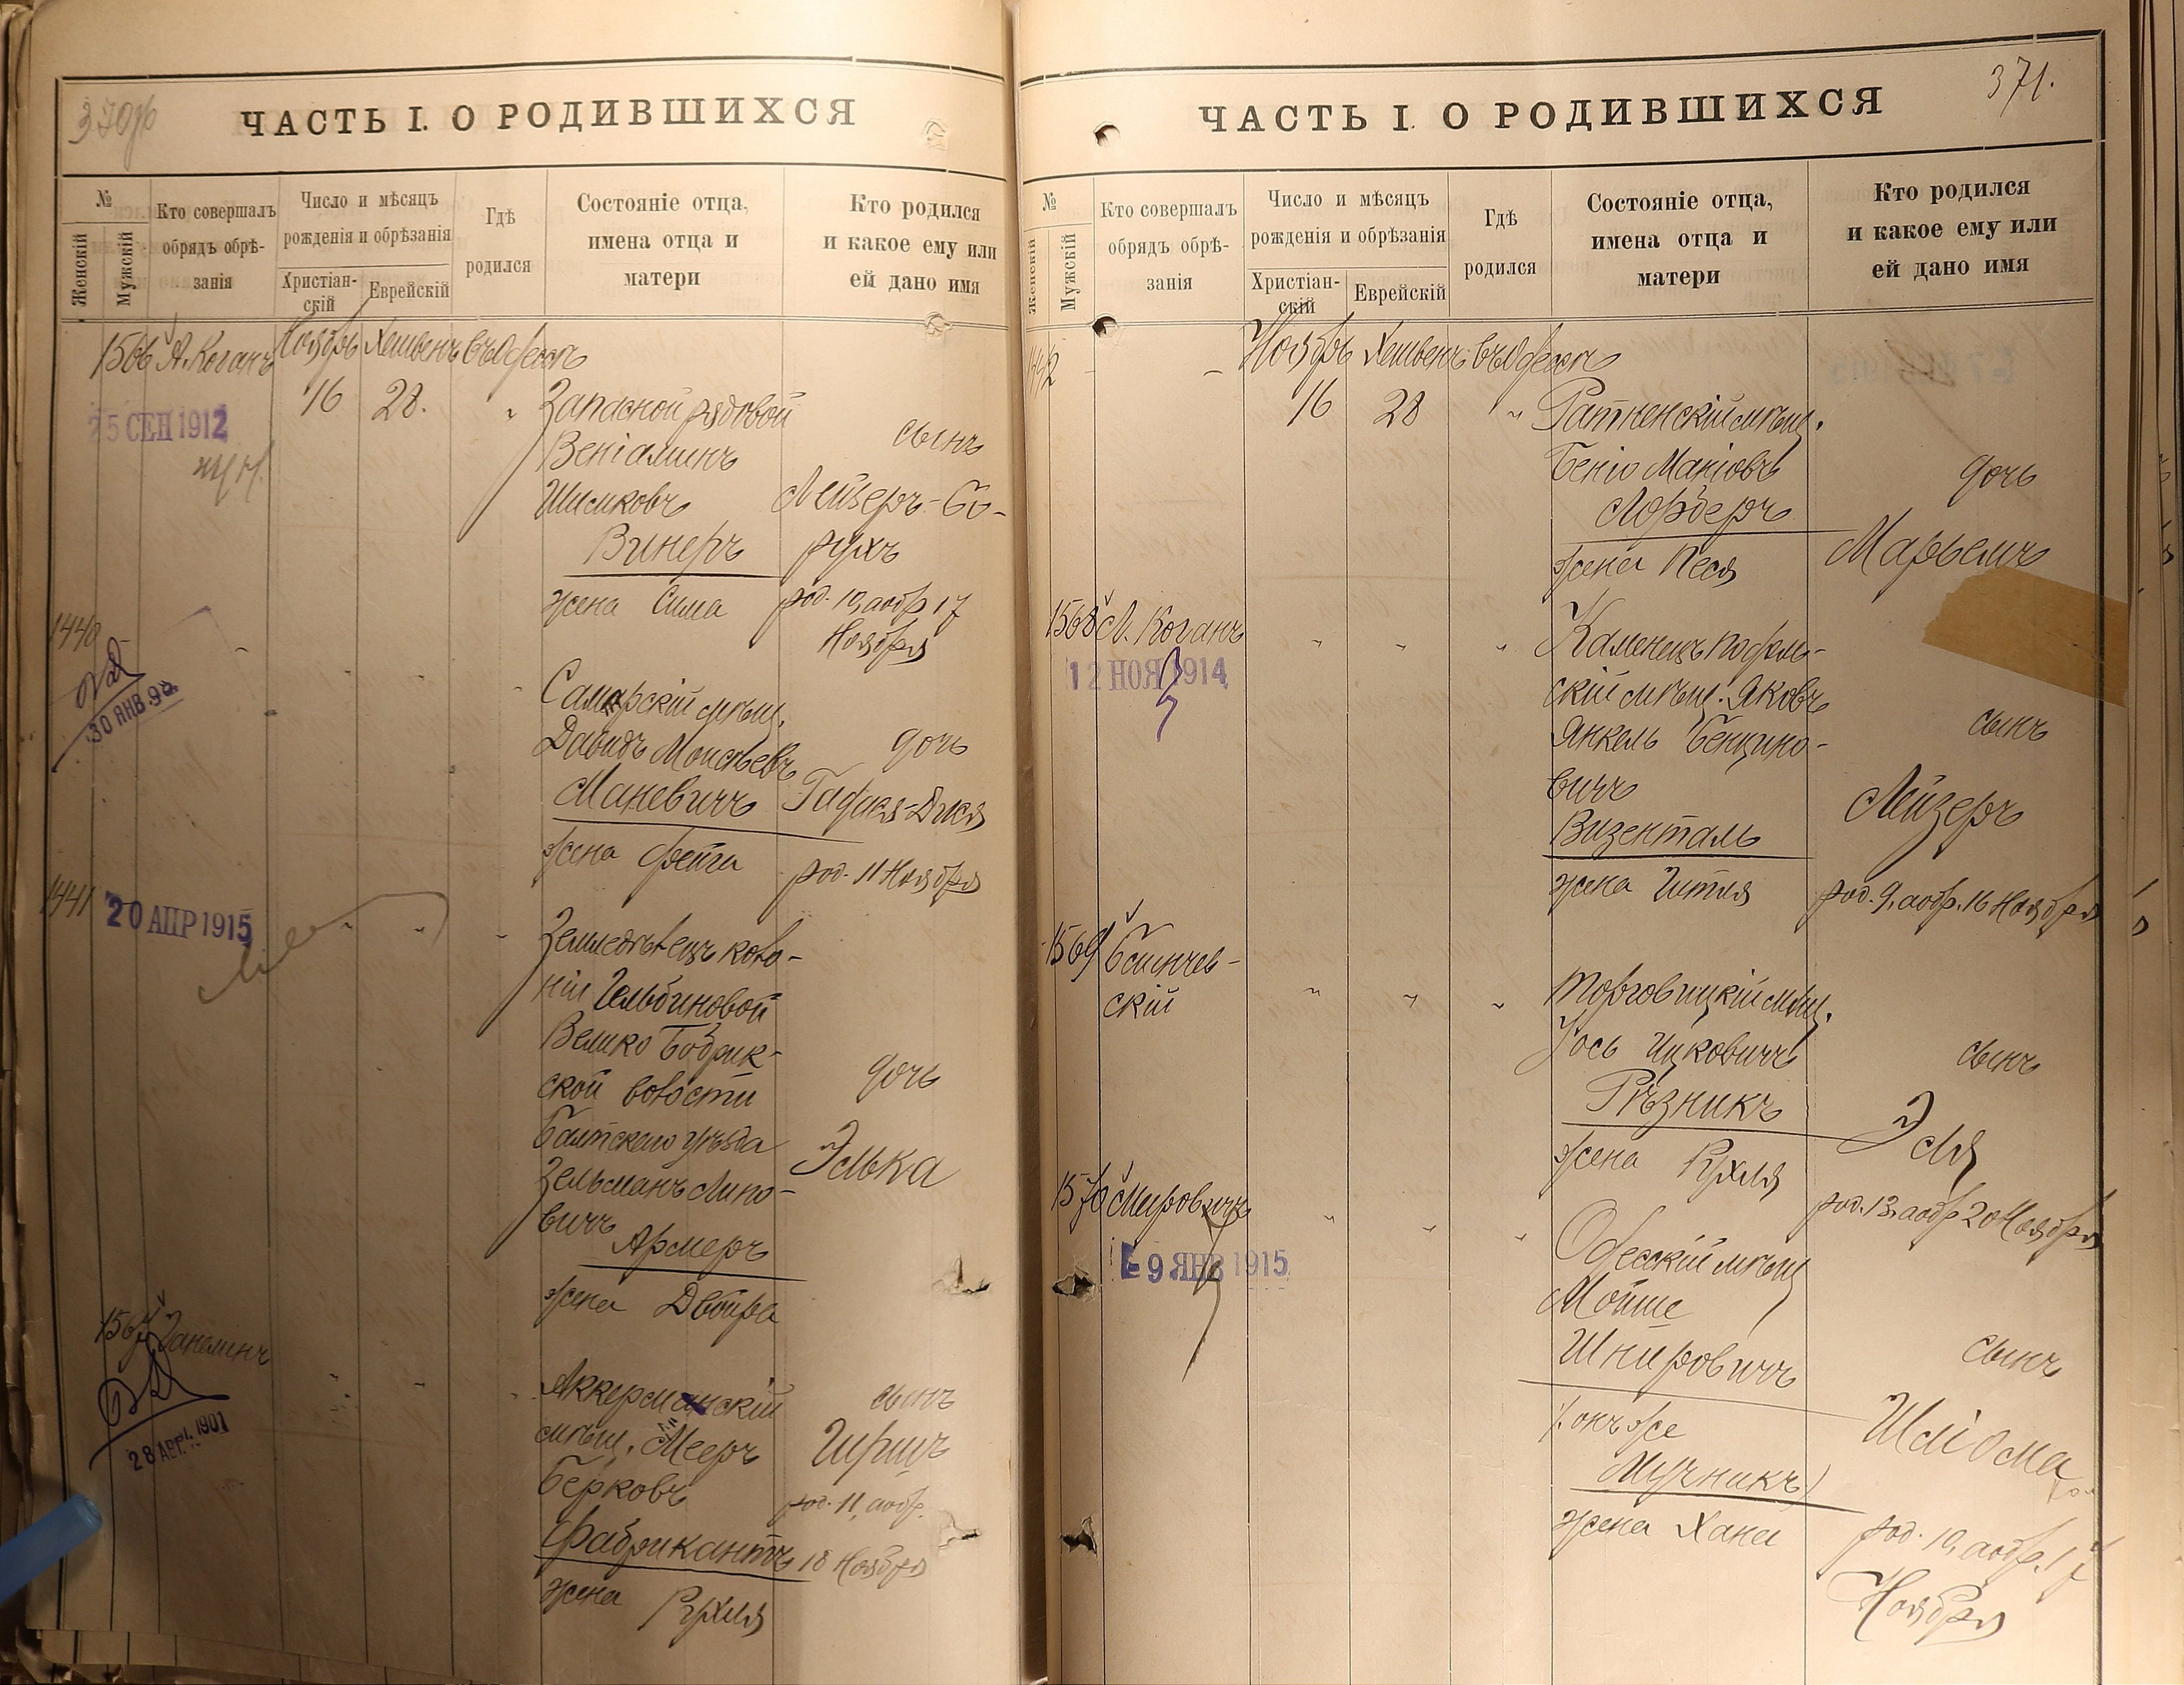 370об
ЧАСТЬ I. О РОДИВШИХСЯ
№
Женскій
Мужскій
Кто совершалъ
обрядъ обрѣ-
занія
Число и мѣсяцъ
рожденія и обрѣзанія
Христіан-
скій
Еврейскій
Гдѣ
родился
Состояніе отца,
имена отца и
матери
Кто родился
и какое ему или
ей дано имя
1566 А. Коганъ Ноябрь Хешвенъ въ Одессѣ
16 28. " Запасной рядовой
25 СЕН 1912
Веніаминъ сынъ
Шимковъ Лейзеръ-Бо-
Винеръ рухъ
жена Сима род. 10, а обр 17
Ноября
1440
30 ЯНВ. 9
Самарскій мѣщ.
Давидъ Моисѣевъ дочь
Маневичъ
жена Фейга род. 11 Ноября
1441
20 АПР 1915
Земледѣлецъ коло-
ніи Гельбиновой
Велико Бобрик-
ской волости дочь
Балтскаго уѣзда
Зельманъ Лино- Элька
вичъ
Армеръ
жена Двойра
1567
28 АПР. 1901
Аккерманскій сынъ
мѣщ. Мееръ Гиршъ
Берковъ род. 11, а обр.
Фабрикантъ 18 Ноября
жена Рухля
371.
ЧАСТЬ I. О РОДИВШИХСЯ
№
Женскій
Мужскій
Кто совершалъ
обрядъ обрѣ-
занія
Число и мѣсяцъ
рожденія и обрѣзанія
Христіан-
скій
Еврейскій
Гдѣ
родился
Состояніе отца,
имена отца и
матери
Кто родился
и какое ему или
ей дано имя
1442 - - Ноябрь Хешвенъ въ Одессѣ
16 28 " Ратненскій мѣщ.
Беніо Маніовъ дочь
Лорберъ
жена Песя Марьемъ
1568 Л. Коганъ " " " Каменецъ Подоль-
12 НОЯ 1914
скій мѣщ. Яковъ
Янкель Бенціно- сынъ
вичъ
Визенталь Лейзеръ
жена Гитля род. 9, а обр. 16 Ноября
1569 " " " Торговицкій мѣщ.
скій
Іось Ицковичъ сынъ
Рѣзникъ Эля
жена Рухля род. 13, а обр 20 Ноября
1570 Мировичъ " " " Одесскій мѣщ
9 ЯНВ 1915
Мойше
Шнировичъ сынъ
онъ же Шліома
Мучникъ)
жена Хана род. 10, а обр. 17
Ноября